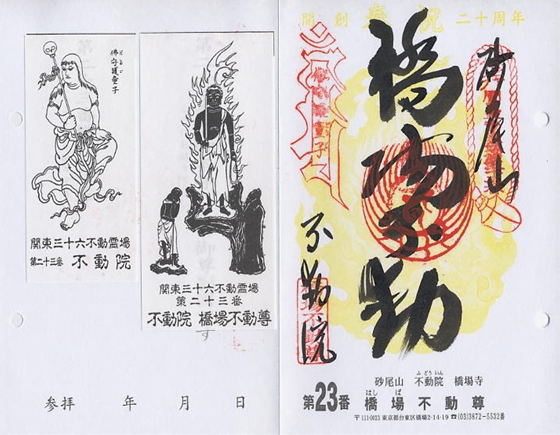 佛守護童子
関東三十六不動霊場
第二十三番 不動院
関東三十六不動霊場
第二十三番
不動院 橋場不動尊
参拝 年 月 日
開創 二十周年
砂尾山
橋場不動
不動院
ふどういん
砂尾山 不動院 橋場寺
はしば
第23番 橋場不動尊
〒111-0023 東京都台東区橋場2-14-19 ☎(03)3872-5532番